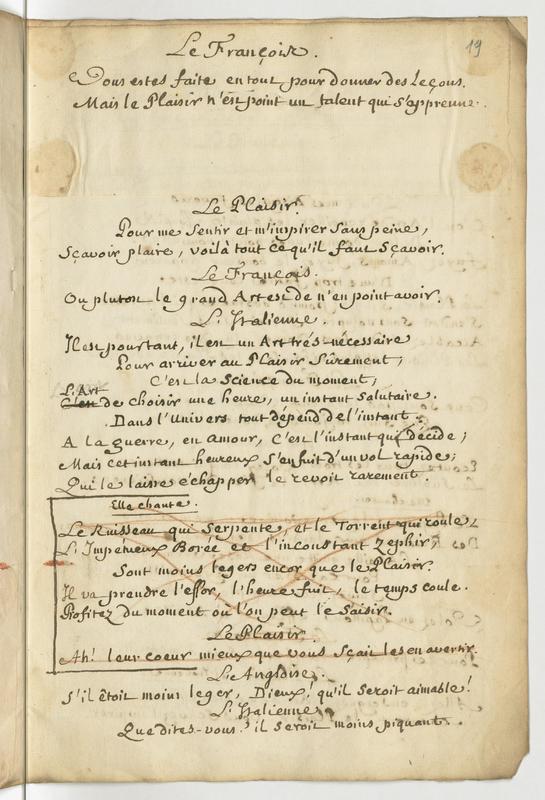 19
Le François.
Vous estes faite en tout pour donner des Leçons.
Mais le Plaisir n'est point un talent qui s'apprenne.
Le Plaisir.
Pour me sentir et m'inspirer sans peine,
Sçavoir plaire, voilà tout ce qu'il faut sçavoir.
Le François.
Ou plutost le grand Art est de n'en point avoir.
L'Italienne.
Il est pourtant, il est un Art très-nécessaire
Pour arriver au Plaisir sûrement;
C'est la science du moment;
L'Art
C'est de choisir une heure, un instant salutaire.
Dans l'Univers tout dépend de l'instant.
A la guerre, en amour, c'est l'instant qui décide;
Mais cet instant heureux s'enfuit d'un vol rapide;
Qui le laisse échapper le revoit rarement.
Elle chante.
Le Ruisseau qui serpente, et le Torrent qui roule,
L'Impetueux Borée et l'inconstant Zephir,
Sont moins legers encor que le Plaisir.
Il va prendre l'essor, l'heure fuit, le temps coule.
Profitez du moment où l'on peut le saisir.
Le Plaisir.
Ah! leur coeur mieux que vous sçait les en avertir.
L'Angloise.
S'il étoit moins leger, Dieux! qu'il seroit aimable!
L'Italienne.
Que dites-vous? il seroit moins piquant.